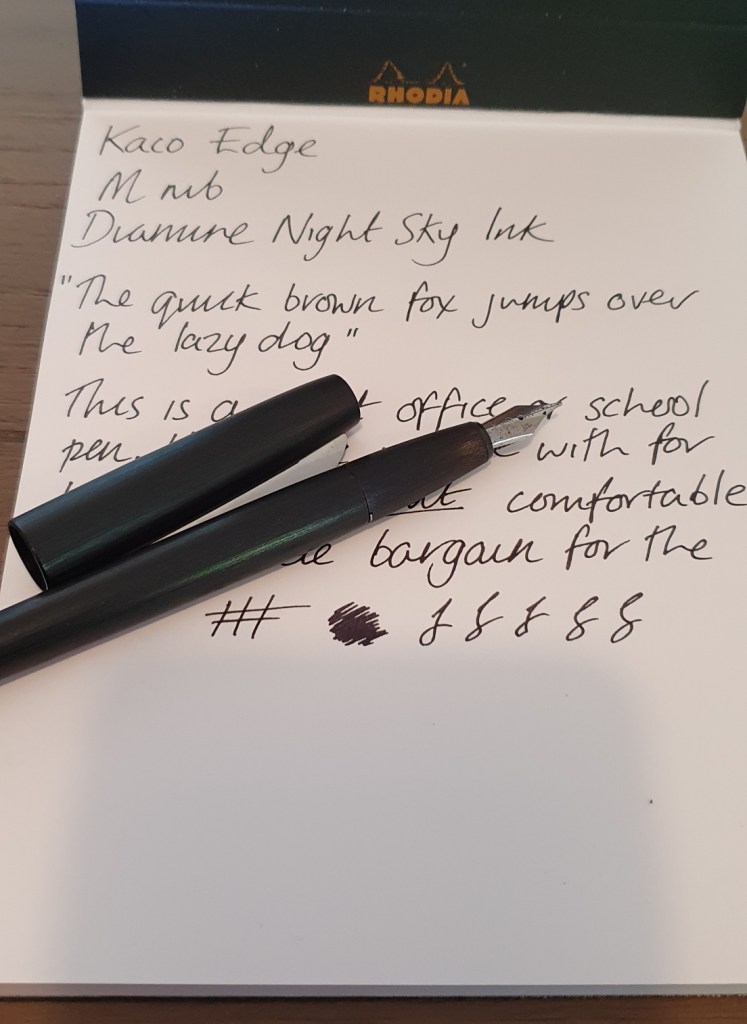 RHODIA
Kaco Edge
M nib
Diamine Night Sky Ink
"The quick brown fox jumps over
the lazy dog"
This is a office or school
pen. with for
comfortable
bargain for the